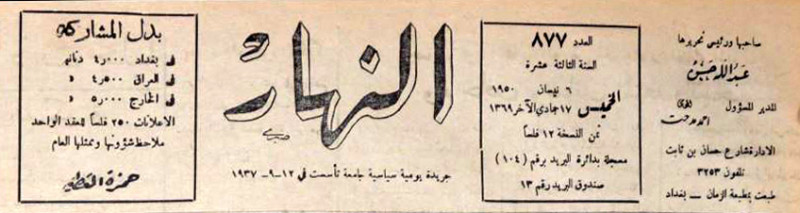 صاحبها ورئيس تحريرها
عبدالله حسن
المدير المسؤول
احمد مدحت
الادارة شارع حسان بن ثابت
تلفون ٣٢٥٣
طبعت بمطبعة الزمان — بغداد
العدد ٨٧٧
السنة الثالثة عشرة
الخميس
٦ نيسان ١٩٥٠
١٧ جمادي الآخر ١٣٦٩
ثمن النسخة ١٢ فلساً
مسجلة بدائرة البريد برقم (١٠٤)
صندوق البريد رقم ١٣
النهار
صبري
جريدة يومية سياسية جامعة تأسست في ١٢-٩-١٩٣٧
بدل المشاركة
في بغداد ٤٫٠٠٠ دنانير
في العراق ٤٫٥٠٠ »
في الخارج ٥٫٠٠٠ »
الاعلانات ٢٥٠ فلساً للعقد الواحد
ملاحظ شؤونها وممثلها العام
حمزة